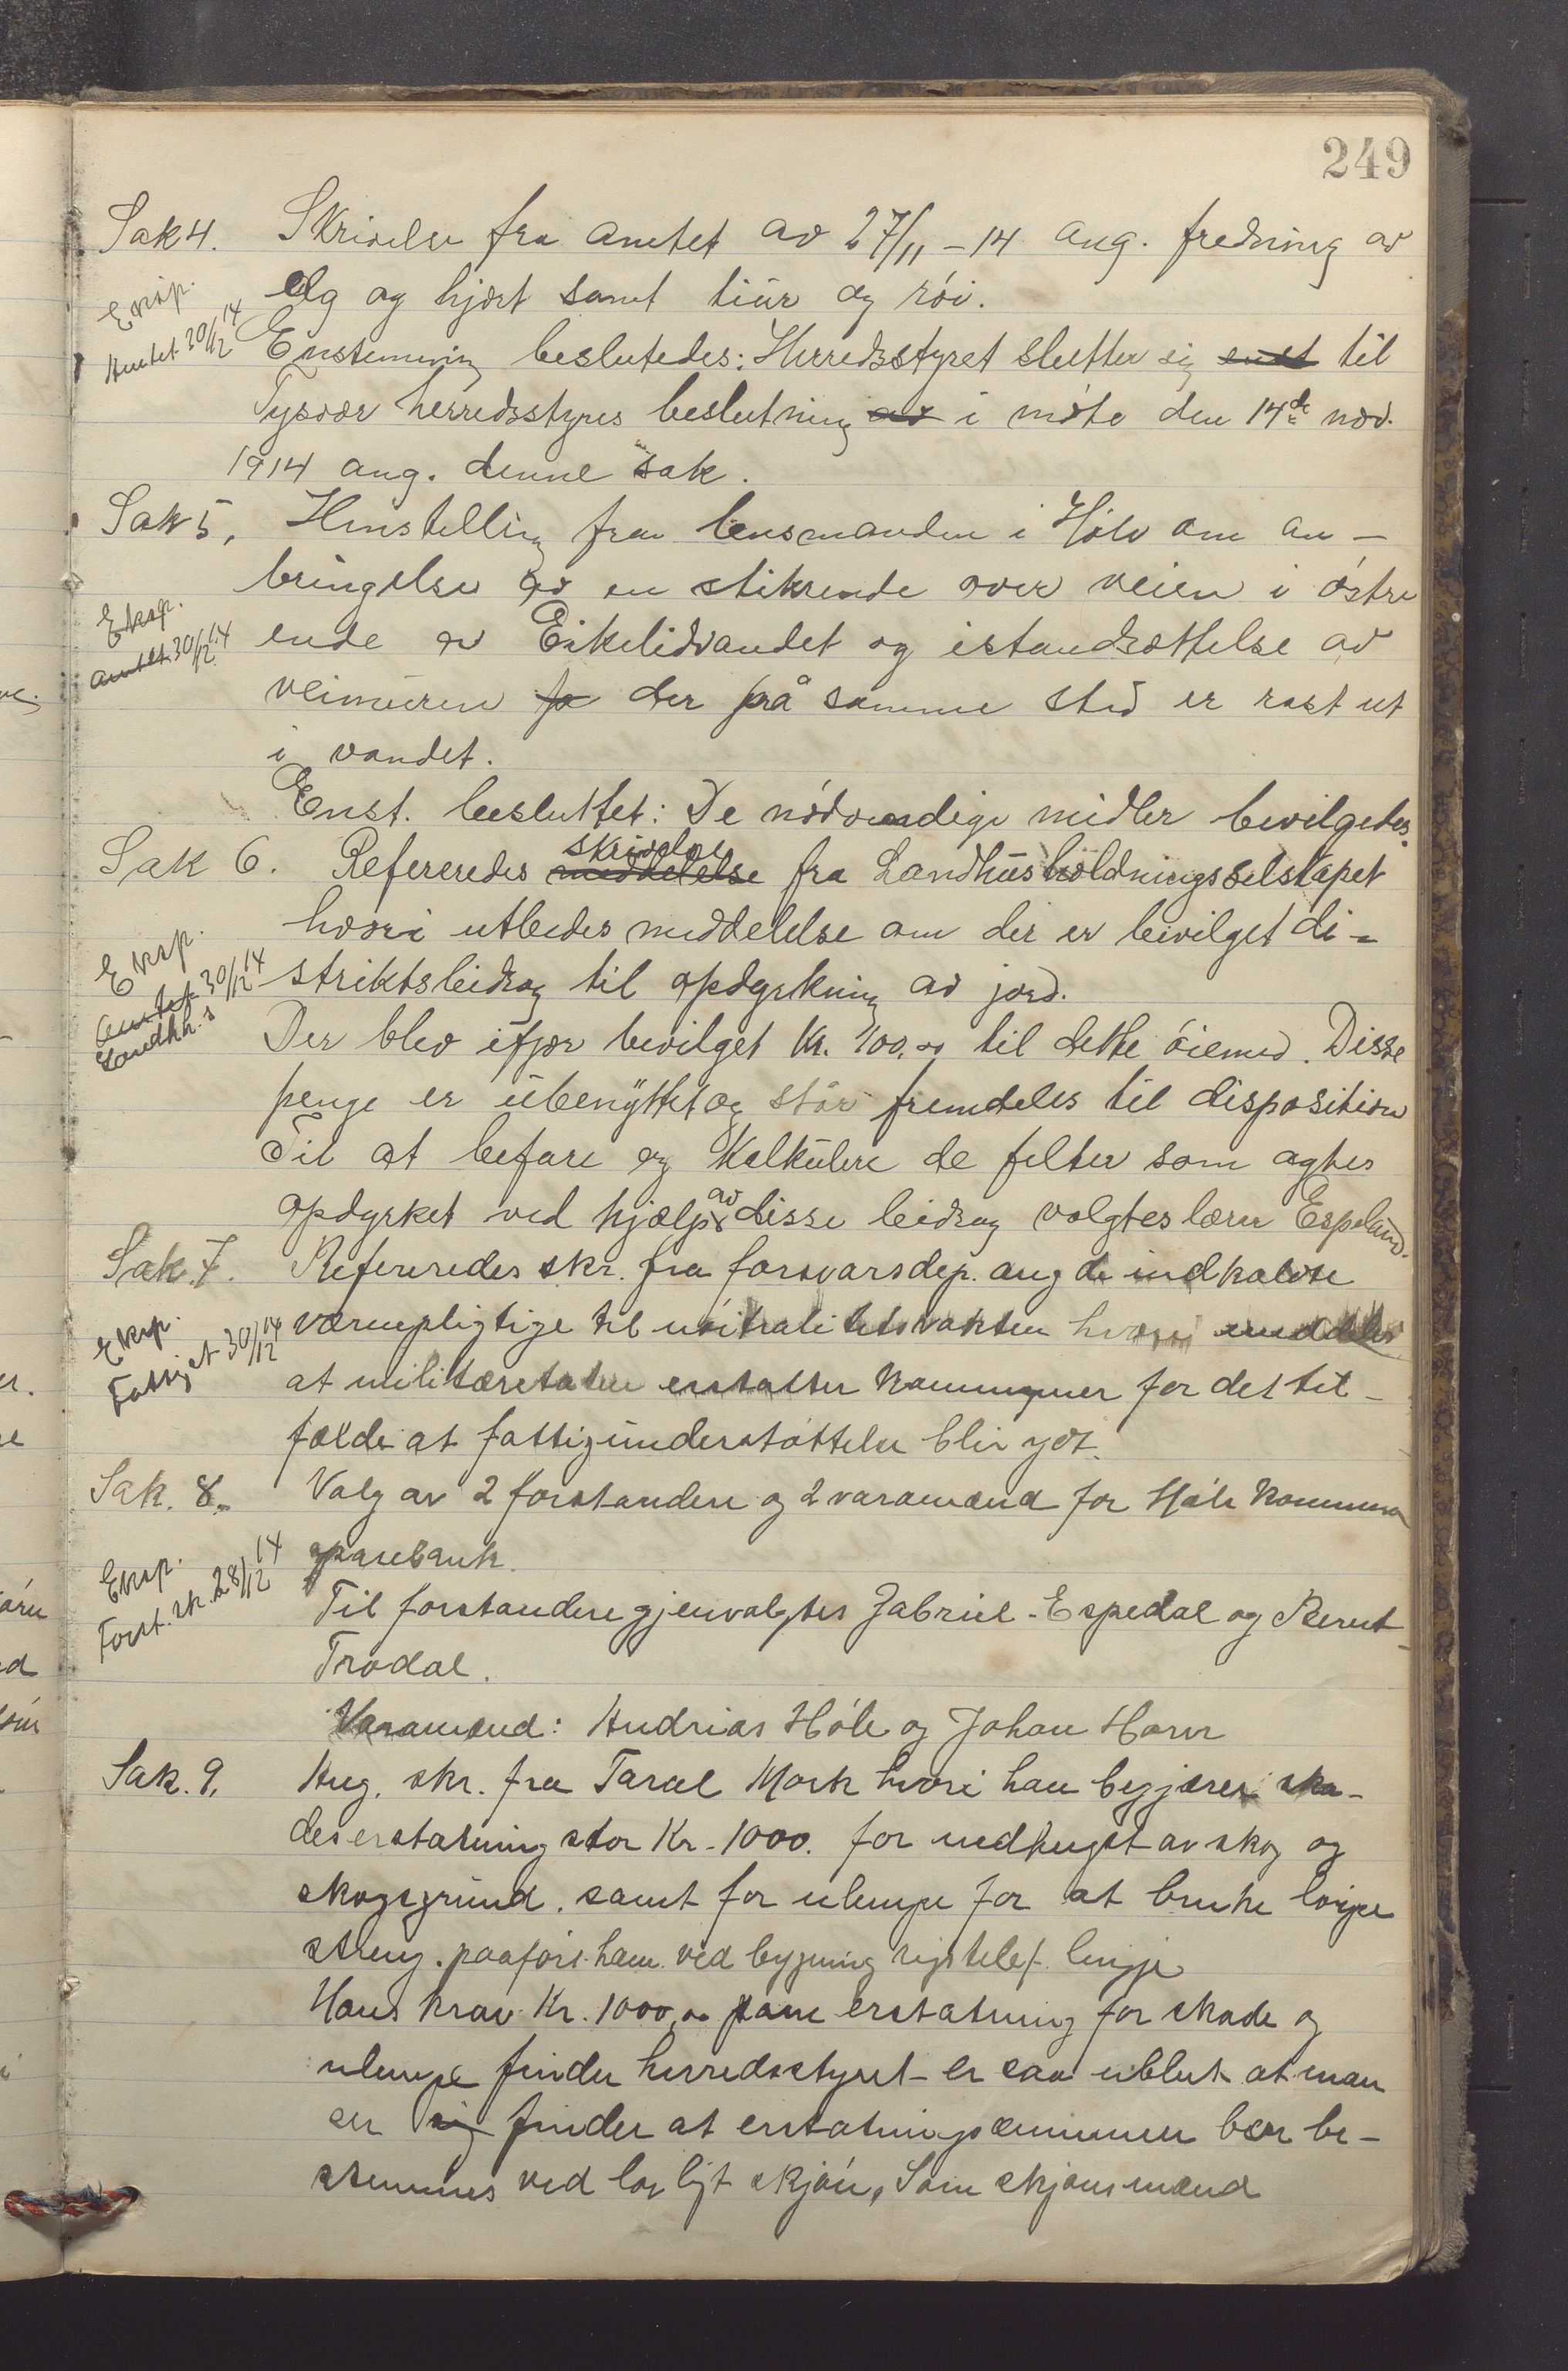 249
Sak 4. Skrivelse fra amtet av 27/11 – 14 ang. fredning av
elg og hjort samt tiur og röi.
Eksp.
Amtet 30/12 14
Enstemmig beslutedes: Herredsstyret slutter sig til
Tysvær herredsstyres beslutning i möte den 14de nov.
1914 ang. denne sak.
Sak 5. Henstelling fra lensmanden i Höle om an-
bringelse av en stikrende over veien i östre
Eksp.
Amtet 30/12 14
ende av Eikelidvandet og istandsættelse av
veimuren der på samme sted er rast ut
i vandet.
Enst. besluttet: De nödvendige midler bevilgedes.
Sak 6. Refereredes skrivelse fra Landhusholdningsselskapet
hvori utbedes meddelelse om der er bevilget di-
Eksp.
Amtet 30/12 14
Landhh.s
striktsbidrag til opdyrkning av jord.
Der blev ifjor bevilget Kr. 100,00 til dette öiemed. Disse
penge er ubenyttet og står fremdeles til disposition
Til at befare og kalkulere de felter som agtes
opdyrket ved hjælp av disse bidrag valgtes lærer Espeland.
Sak. 7. Refereredes skr. fra forsvarsdep. ang de indkaldte
Eksp.
Fattigst 30/12 14
værnepligtige til nöitralitetsvakten hvori meddeles
at militæretaten erstatter kommuner for det til-
fælde at fattigunderstöttelse blir ydt.
Sak. 8. Valg av 2 forstandere og 2 varamænd for Höle kommun
sparebank.
Eksp.
Forst. sk. 28/12 14
Til forstandere gjenvalgtes Gabriel Espedal og Bernt
Trodal.
Varamænd: Andreas Höle og Johan Haver
Sak. 9. Ang. skr. fra Taral Mork hvori han begjærer ska-
deserstatning stor Kr. 1000. for nedhugst av skog og
skogsgrund. samt for ulempe for at bruke löipe
streng. paaförs ham ved bygning rigstelef. linje
Hans krav Kr. 1000,00 som erstatning for skade og
ulempe finder herredsstyret er saa ublut at man
en finder at erstatningssummen bær be-
stemmes ved lovligt skjön. Som skjönsmænd